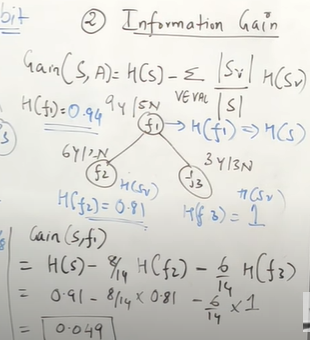 bit
② Information Gain
Gain(S, A) = H(S) - Σ |Sv| / |S| H(Sv)
VEVAL
H(f1) = 0.94 9Y/5N
f1 → H(f1) ⇒ H(S)
6Y/2N 3Y/3N
f2 f3
H(Sv) H(Sv)
H(f2) = 0.81 H(f3) = 1
Gain(S, f1)
= H(S) - 8/14 H(f2) - 6/14 H(f3)
= 0.91 - 8/14 × 0.81 - 6/14 × 1
= 0.049